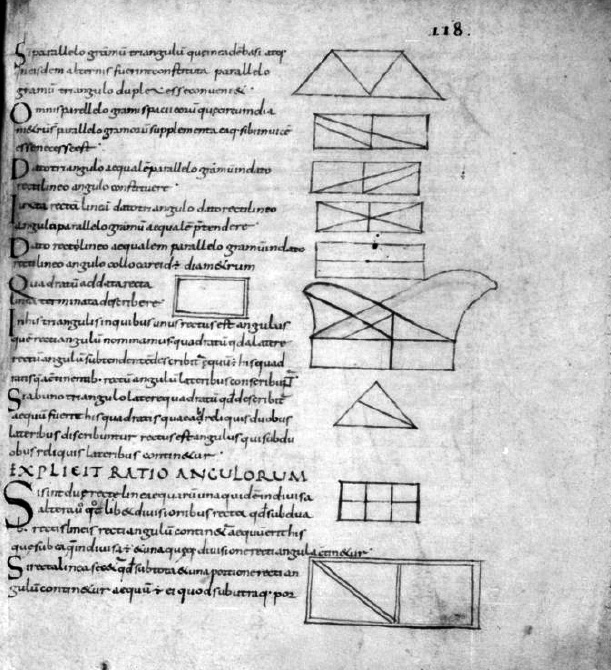 118.
Si parallelo grāmū triangulū que in eadē basi atq;
in eisdem alternis fuerint constituta parallelo
gramū triangulo duplex esse conuenit.
Omnis parellelo grami spacii eorū quę circum dia
metrūs parallelo gramorū supplementa eaq; sibi inuicē
esse necesse est.
Dato triangulo aequalē parallelo gramū in dato
rectilineo angulo constituere.
Iuxta rectā lineā dato triangulo dato rectilineo
angulo parallelo gramū aequalē p̄tendere
Dato rectilineo aequalem parallelo gramū in dato
rectilineo angulo collocare id ÷ diametrum
Quadratū ad data recta
linea terminata describere
In his triangulis in quibus unus rectus est angulus
quē rectiangulū nominamus quadratū qd a latere
rectū angulū subtendente describit equū ÷ his quad
ratis q̄ a continentib; rectū angulū lateribus conscribunt̄
Si ab uno triangulo latere quadratū qđ describit̄
aequū fuerit his quadratis quae ad reliquis duobus
lateribus discribuntur rectus est angulus qui sub du
obus reliquis lateribus continetur
EXPLICIT RATIO ANGULORUM
Si sint duę recte lineae quarū una quidē indiuisa
altera uō libet diuisionibus recta qđ sub dua
b; rectis lineis rectiangulū continetur aequū erit his
que sub ea q̄ indiuisa ÷ et una queq; diuisione rectiangula continetur
Si recta linea secetur qđ sub tota et una portione rectian
gulū continetur aequū ÷ ei quod sub utraq; por